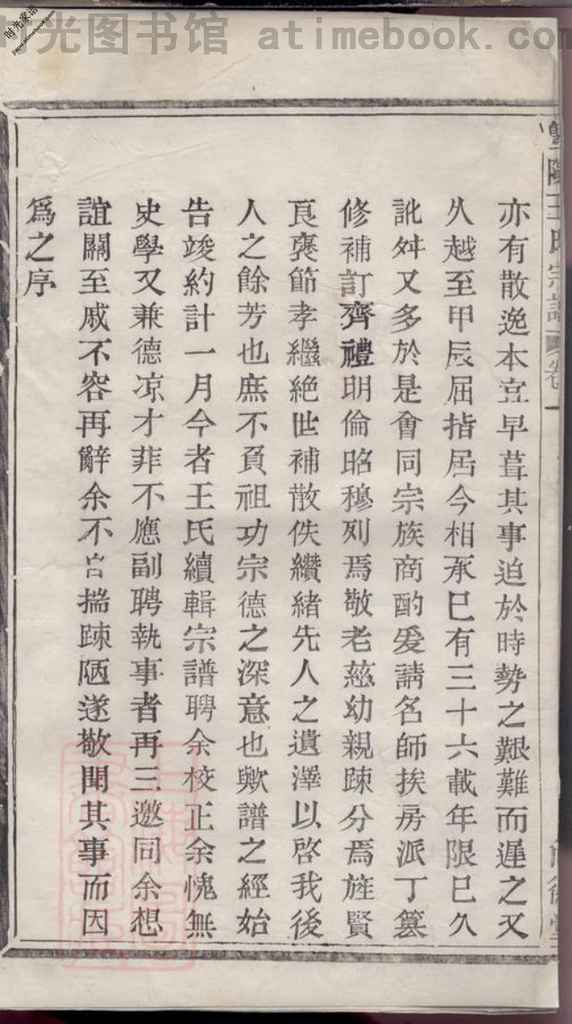 时光图书馆 atimebook.com
暨陽王氏宗譜 卷一
亦有散逸本宜早葺其事迫於時勢之艱難而遲之又
久越至甲辰屈指居今相承已有三十六載年限已久
訛舛又多於是會同宗族商酌爰請名師挨房派丁纂
修補訂齊禮明倫昭穆列焉敬老慈幼親踈分焉旌賢
良褒節孝繼絕世補散佚纘緒先人之遺澤以啓我後
人之餘芳也庶不負祖功宗德之深意也歟譜之經始
告竣約計一月今者王氏續輯宗譜聘余校正余愧無
史學又兼德凉才非不應副聘執事者再三邀同余想
誼關至戚不容再辭余不    揣踈陋遂敬聞其事而因
爲之序